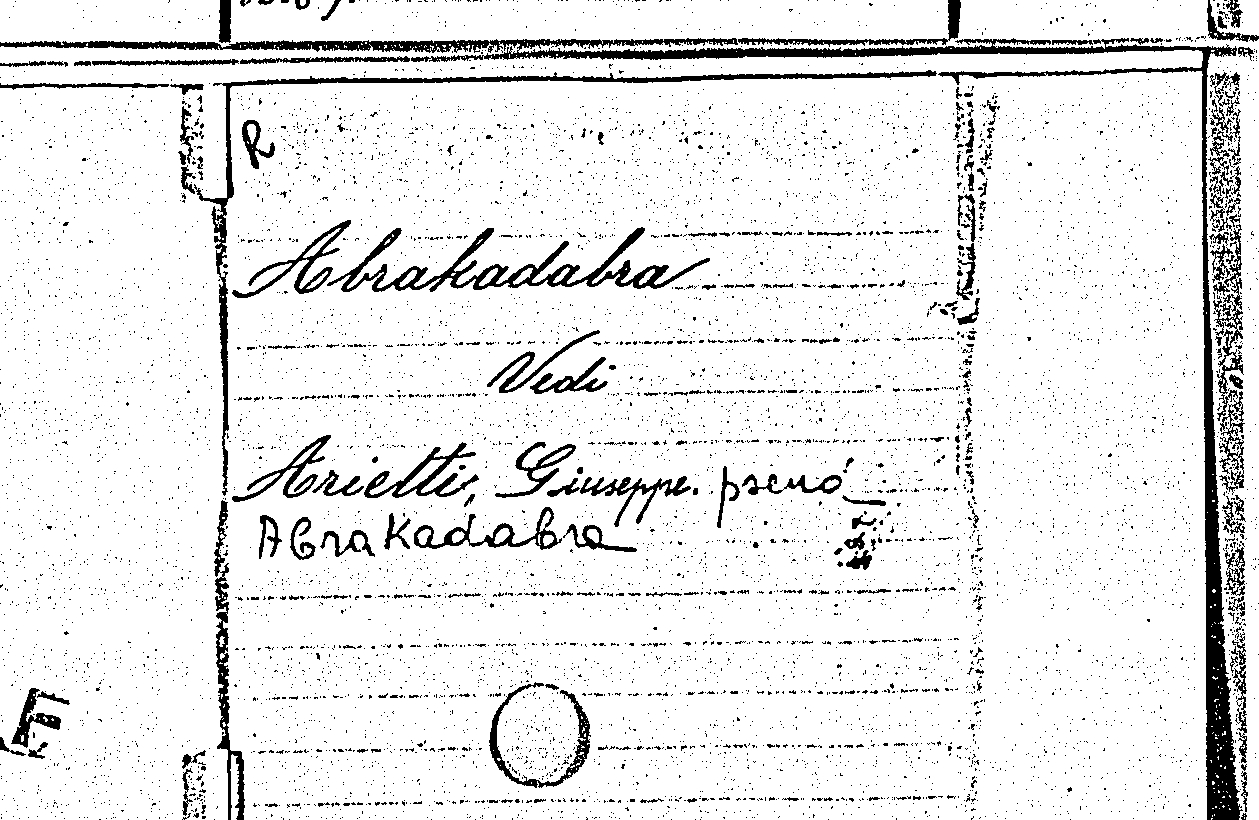 R
Abrakadabra
Vedi
Arietti, Giuseppe. pseud
Abrakadabra